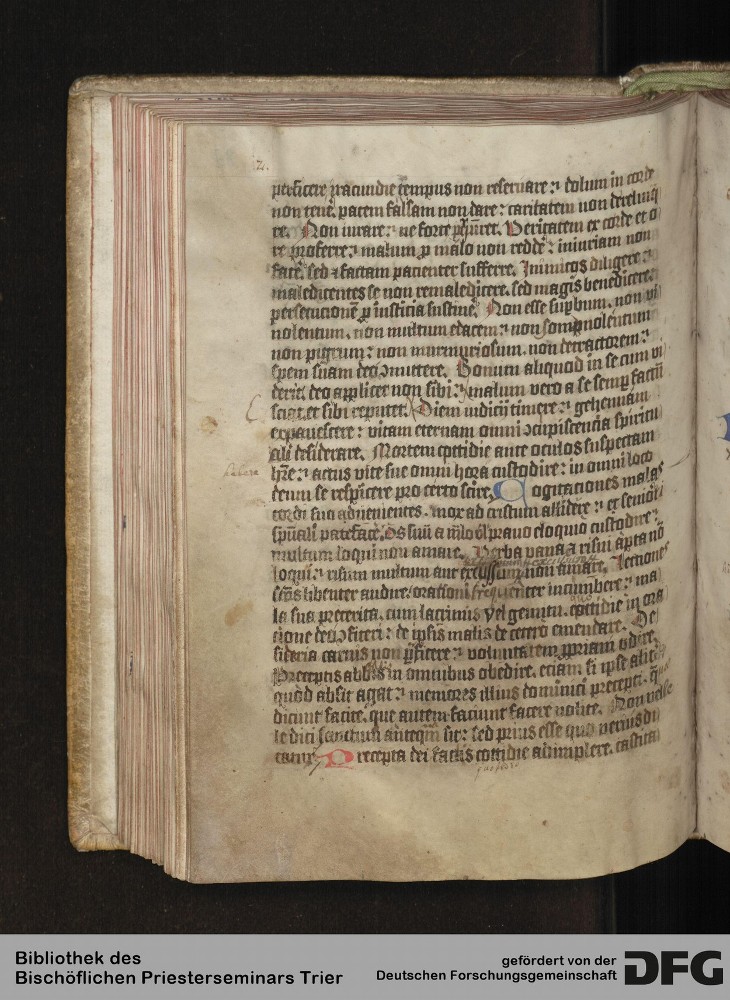 2.
perficere iracundie tempus non reseruare ⁊ dolum in corde
non tene͛. pacem falsam non dare ⁊ caritatem non derelinq̄
re. Non iurare ⁊ ne forte piuret. Veritatem ex corde et o
re proferre ⁊ malum ꝓ malo non redde͛ ⁊ iniuriam non
face͛. sed ⁊ factam pacienter sufferre. Inimicos diligere ⁊
maledicentes se non remaledicere. sed magis benedicere ⁊
persecucionē ꝓ iusticia sustine͛. Non esse suꝑbum. non vi
nolentum. non multum edacem ⁊ non sompnolentum
non pigrum ⁊ non murmuriosum. non detractorem ⁊
spem suam deo ꝯmittere. Bonum aliquod in se cum vi
derit. deo applicet non sibi ⁊ malum vero a se semꝑ factū
sciat. et sibi reputet. Diem iudicii timere ⁊ gehennam
expauescere ⁊ vitam eternam omni ꝯcupiscencia spiritu
ali desiderare. Mortem cottidie ante oculos suspectam
habere
hr̄e ⁊ actus vite sue omni hora custodire ⁊ in omni loco
deum se respicere pro certo scire. Cogitaciones malas
cordi suo aduenientes. mox ad cristum allidere ⁊ et seniori
spūali pateface͛. Os suū a malo ul prauo eloquio custodire ⁊
multum loqui non amare. Verba vana a risui apta nō
loqui ⁊ risum multum aut excussum non amare. Lectiones
scās libenter audire. orationi frequenter incumbere ⁊ ma
la sua preterita. cum lacrimis vel gemitu. cottidie in ora
cione deo ꝯfiteri ⁊ de ipsis malis de cetero emendare. De
sideria carnis non ꝑficere ⁊ voluntatem ꝓpriam odire.
Preceptis abb̄is in omnibus obedire. eciam si ipse alit͛
quod absit agat ⁊ memores illius dominici precepti. q̄
dicunt facite. que autem faciunt facere nolite. Non velle
se dici sanctum anteq̄m sit ⁊ sed prius esse quo verius di
catur. Precepta dei factis cottidie adimplere. castita
Bibliothek des
Bischöflichen Priesterseminars Trier
gefördert von der
Deutschen Forschungsgemeinschaft
DFG